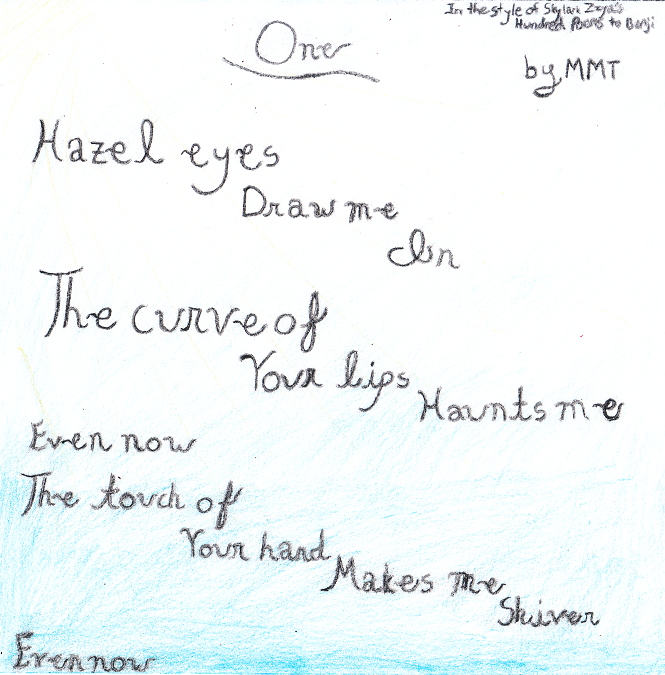 In the style of Skylar Zaya's
Hundred Poems to Benji
One
by MMT
Hazel eyes
Draw me
In
The curve of
Your lips
Haunts me
Even now
The touch of
Your hand
Makes me
Shiver
Even now